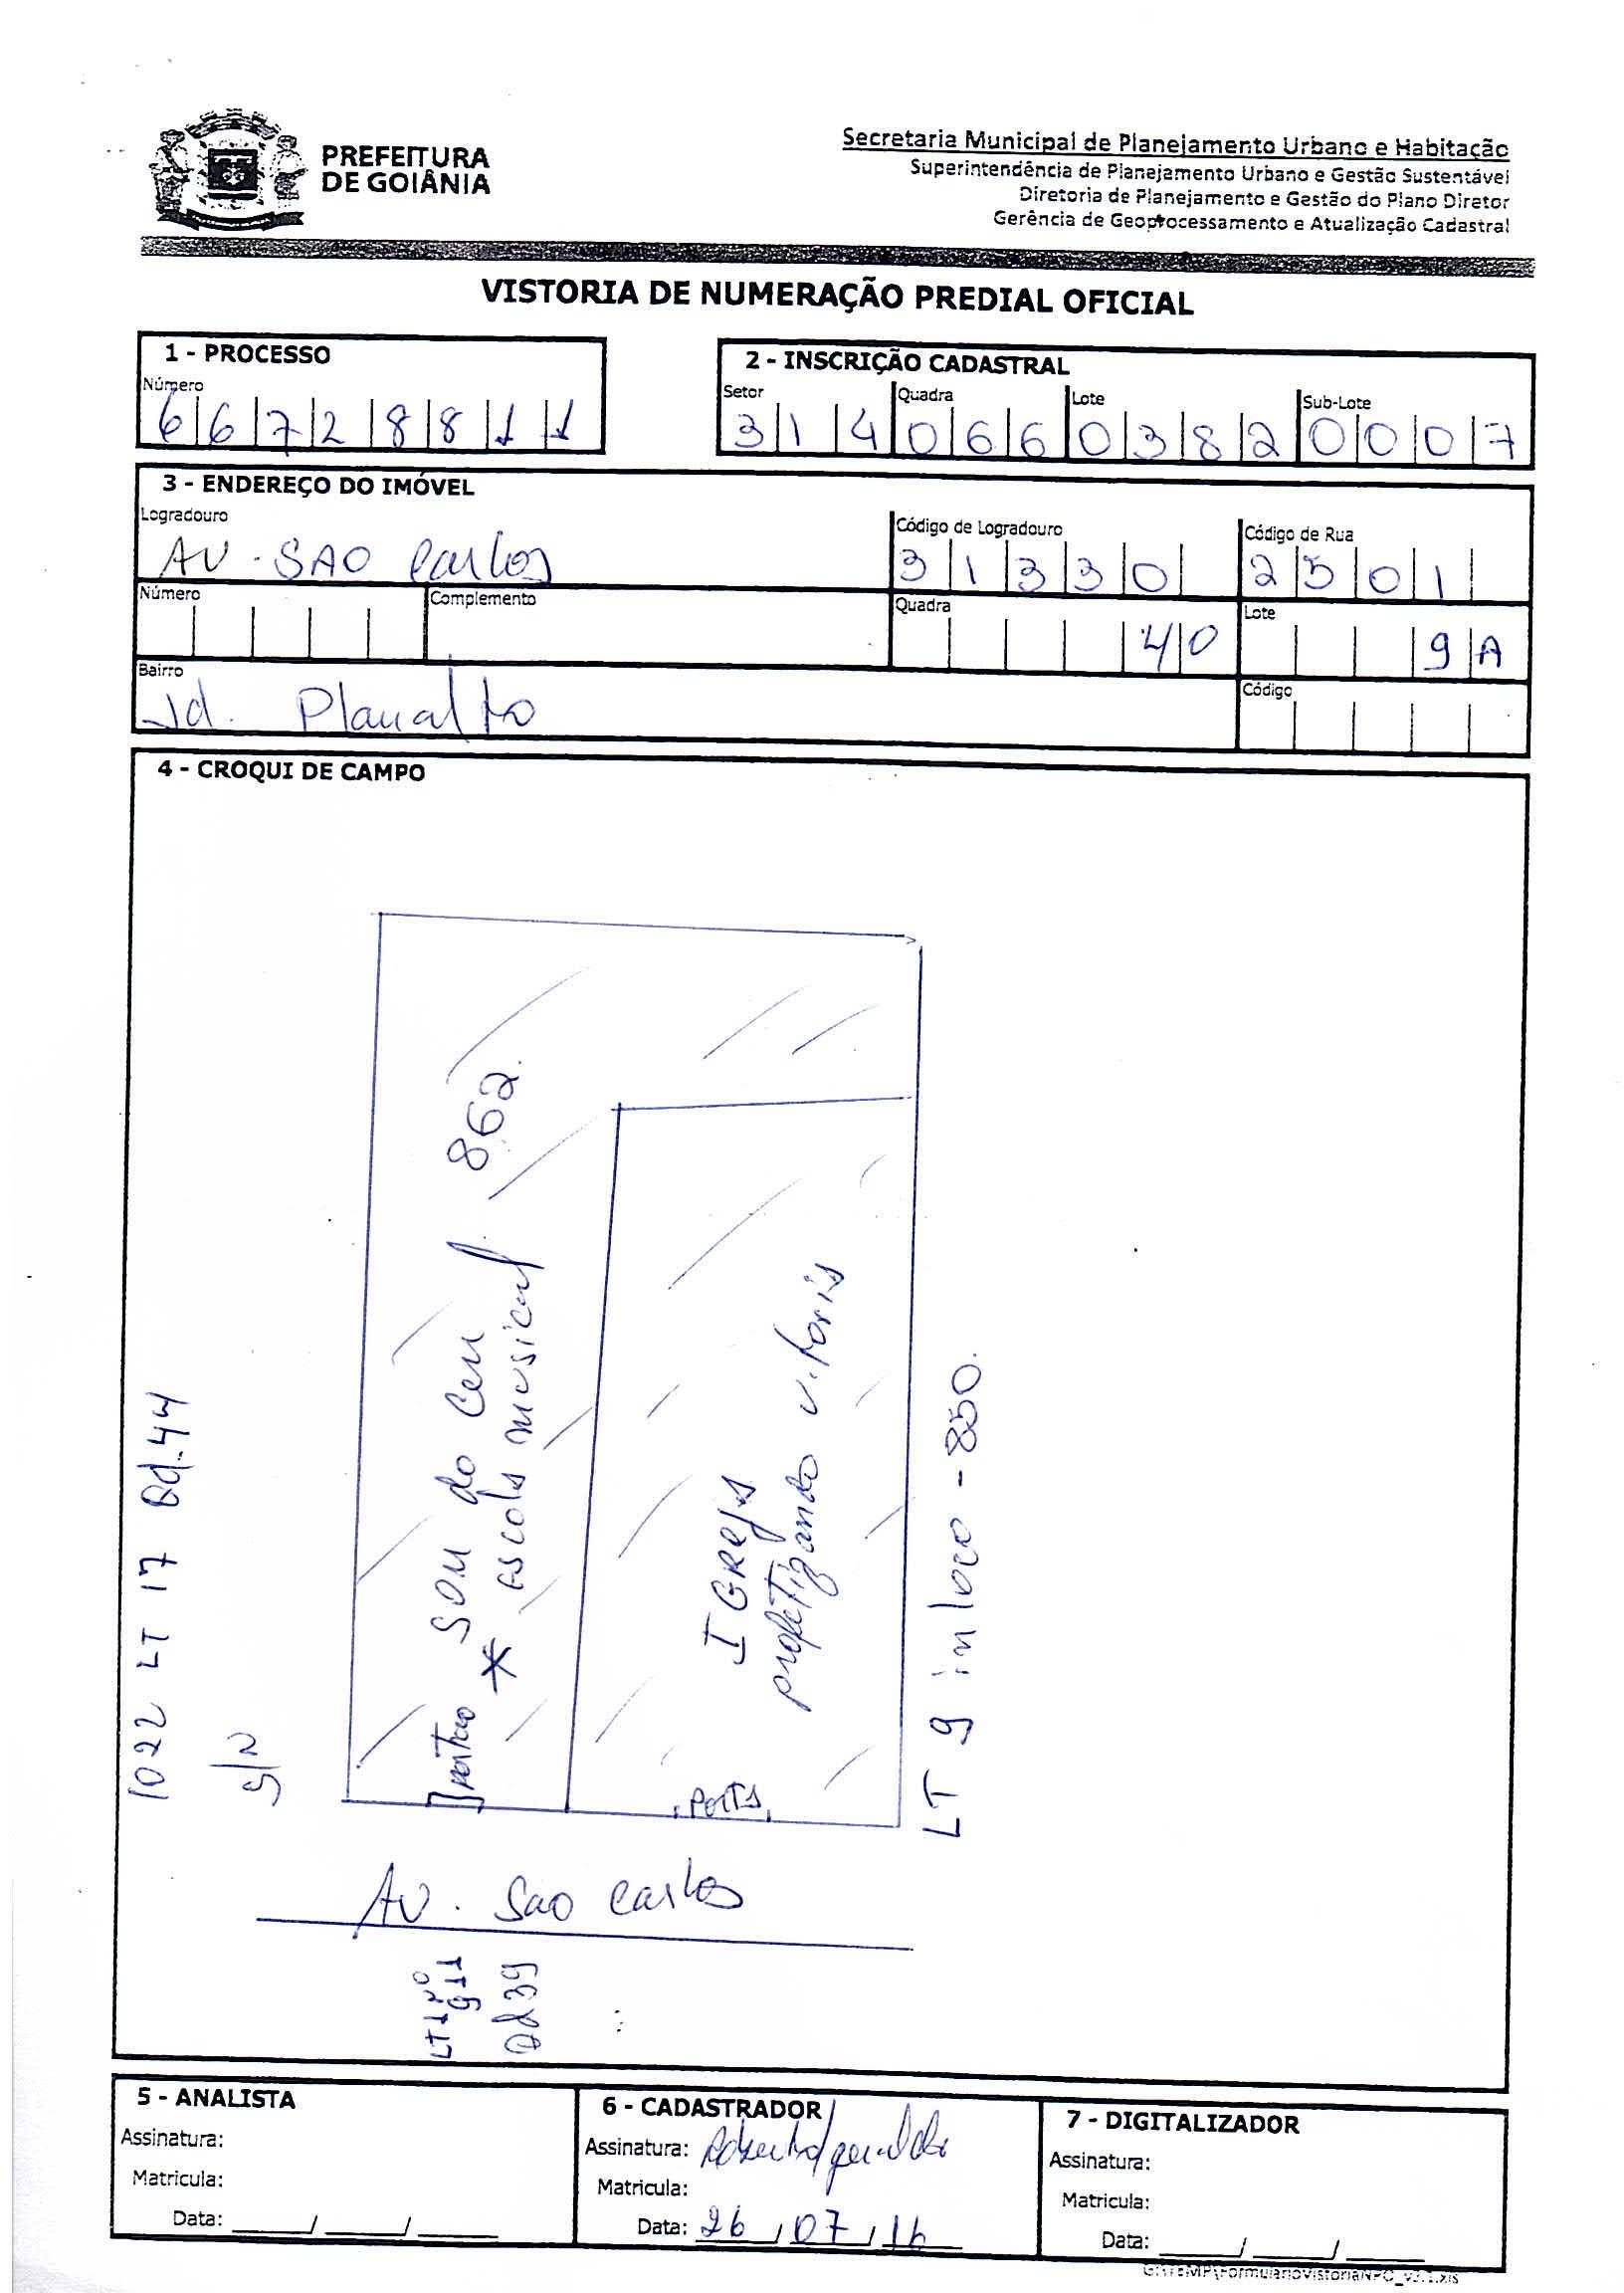 PREFEITURA
DE GOIÂNIA
Secretaria Municipal de Planejamento Urbano e Habitação
Superintendência de Planejamento Urbano e Gestão Sustentável
Diretoria de Planejamento e Gestão do Plano Diretor
Gerência de Geoprocessamento e Atualização Cadastral
VISTORIA DE NUMERAÇÃO PREDIAL OFICIAL
1 - PROCESSO
Número
6 6 7 2 8 8 1 1
2 - INSCRIÇÃO CADASTRAL
Setor Quadra Lote Sub-Lote
3 1 4 0 6 6 0 3 8 2 0 0 0 7
3 - ENDEREÇO DO IMÓVEL
Logradouro Código de Logradouro Código de Rua
AV. SAO Carlos 3 1 3 3 0 2 5 0 1
Número Complemento Quadra Lote
40 9 A
Bairro Código
Jd. Planalto
4 - CROQUI DE CAMPO
1022 LT 17 Qd.44
S/N
portao
SOM do Ceu
* Escola musical 862.
IGREJA
profetizando vitoria
PORTA
LT 9 in loco - 850.
AV. Sao Carlos
911
Qd 39
5 - ANALISTA
Assinatura:
Matricula:
Data: ____/____/____
6 - CADASTRADOR
Assinatura:
Matricula:
Data: 26/07/16
7 - DIGITALIZADOR
Assinatura:
Matricula:
Data: ____/____/____
G:\TEMP\FormularioVistoriaNPO_v2.1.xls